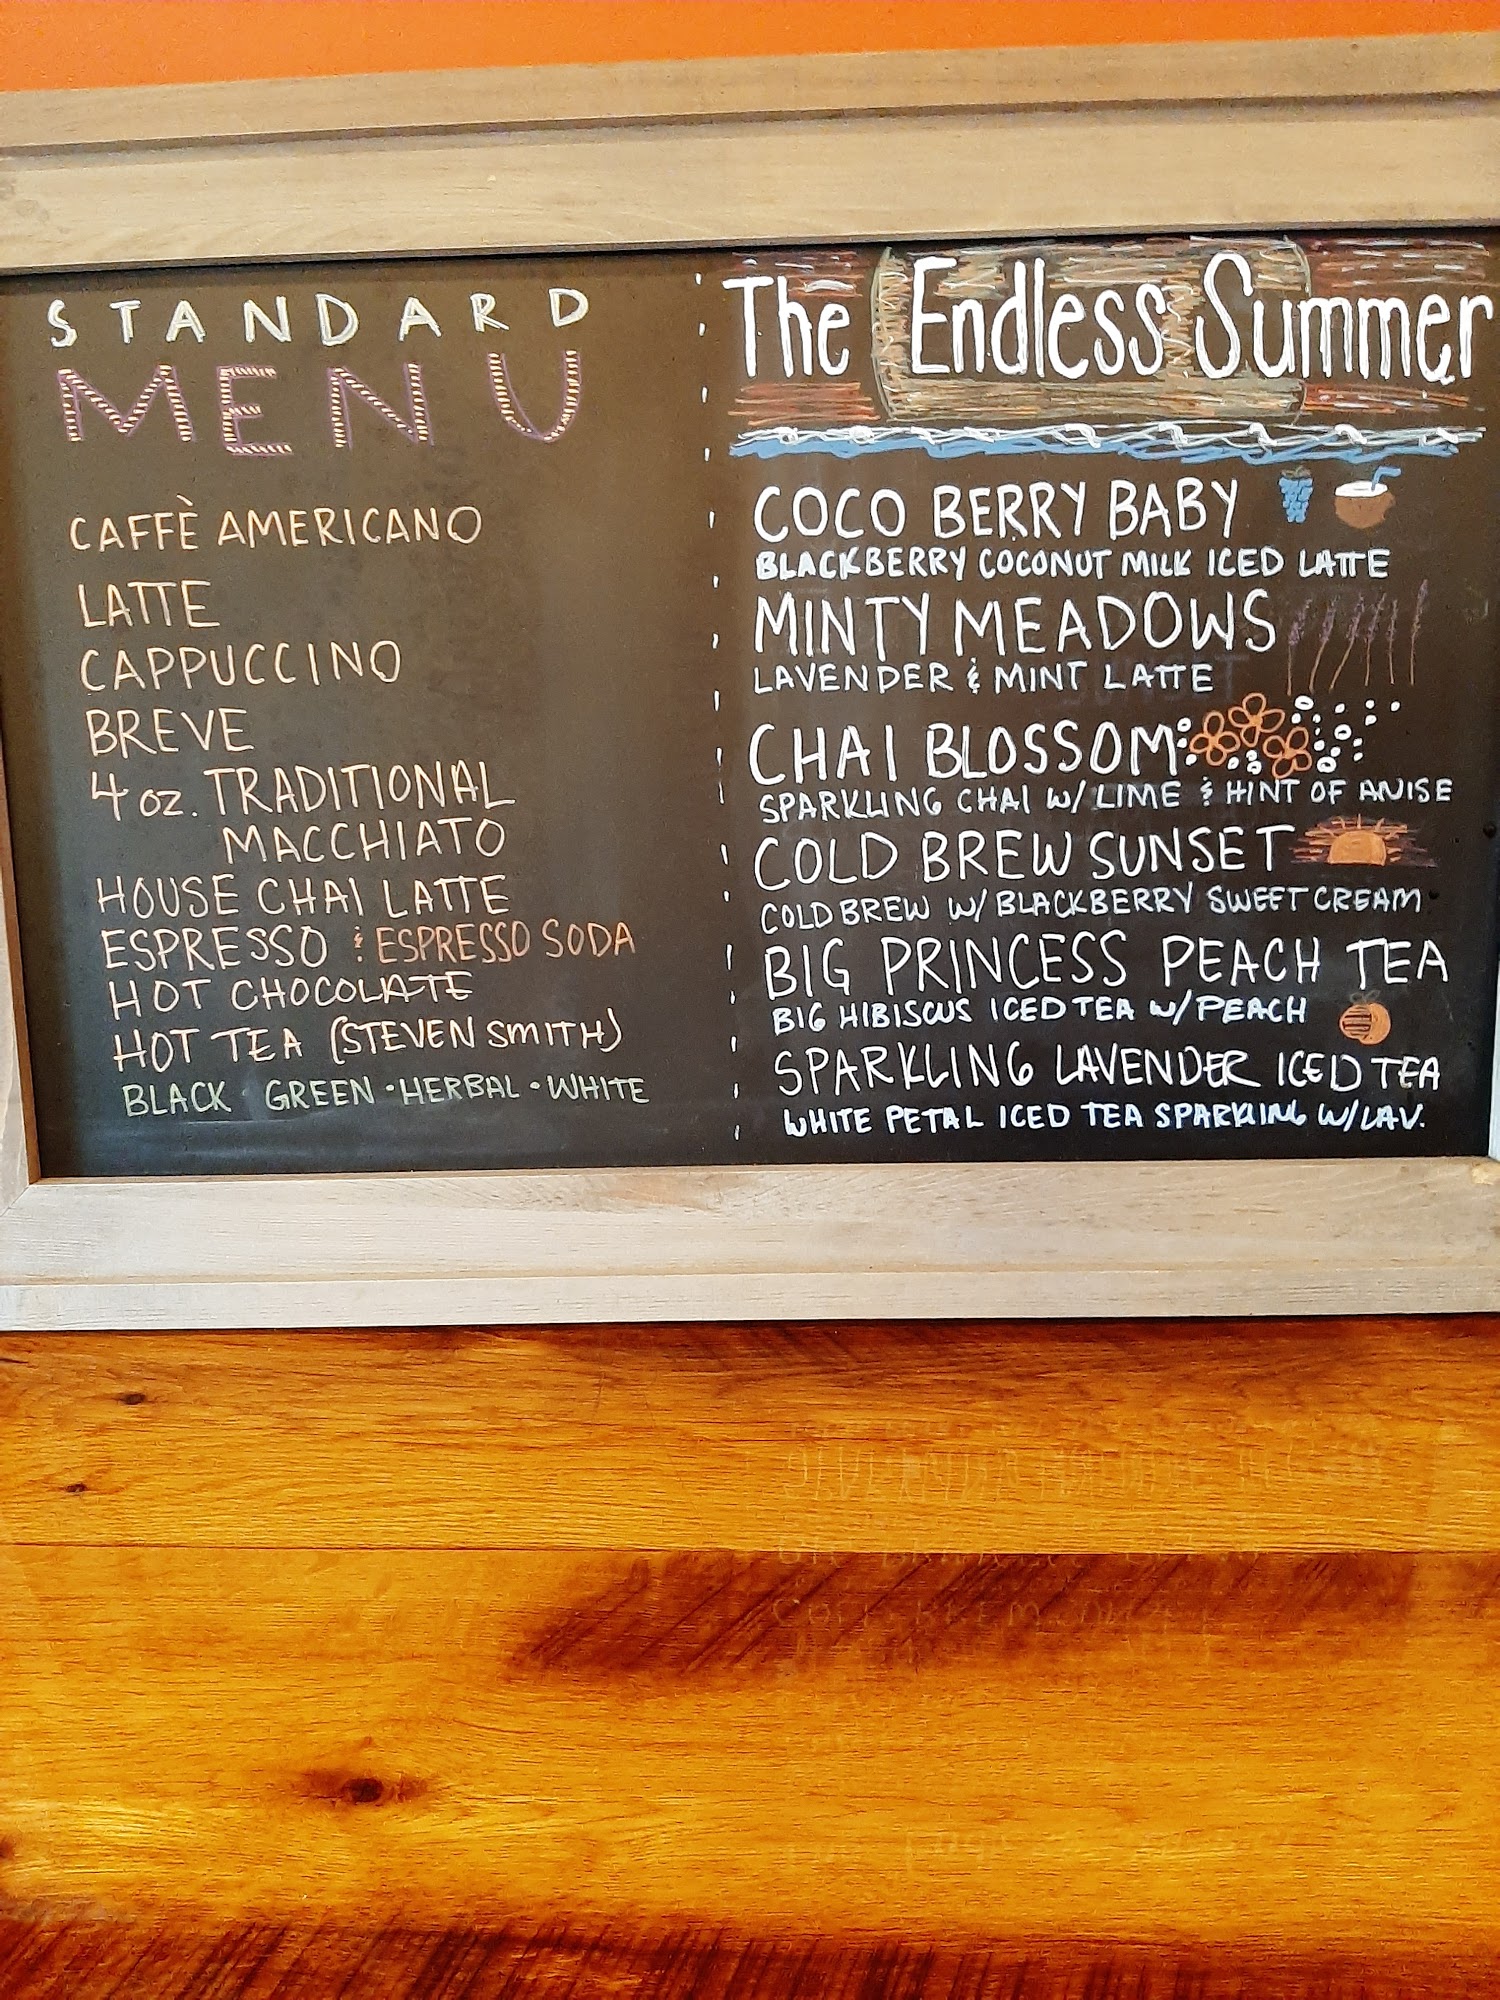 STANDARD
MENU
CAFFÈ AMERICANO
LATTE
CAPPUCCINO
BREVE
4 oz. TRADITIONAL
MACCHIATO
HOUSE CHAI LATTE
ESPRESSO & ESPRESSO SODA
HOT CHOCOLATE
HOT TEA (STEVEN SMITH)
BLACK · GREEN · HERBAL · WHITE
The Endless Summer
COCO BERRY BABY
BLACKBERRY COCONUT MILK ICED LATTE
MINTY MEADOWS
LAVENDER & MINT LATTE
CHAI BLOSSOM
SPARKLING CHAI W/ LIME & HINT OF ANISE
COLD BREW SUNSET
COLD BREW W/ BLACKBERRY SWEET CREAM
BIG PRINCESS PEACH TEA
BIG HIBISCUS ICED TEA W/ PEACH
SPARKLING LAVENDER ICED TEA
WHITE PETAL ICED TEA SPARKLING W/ LAV.